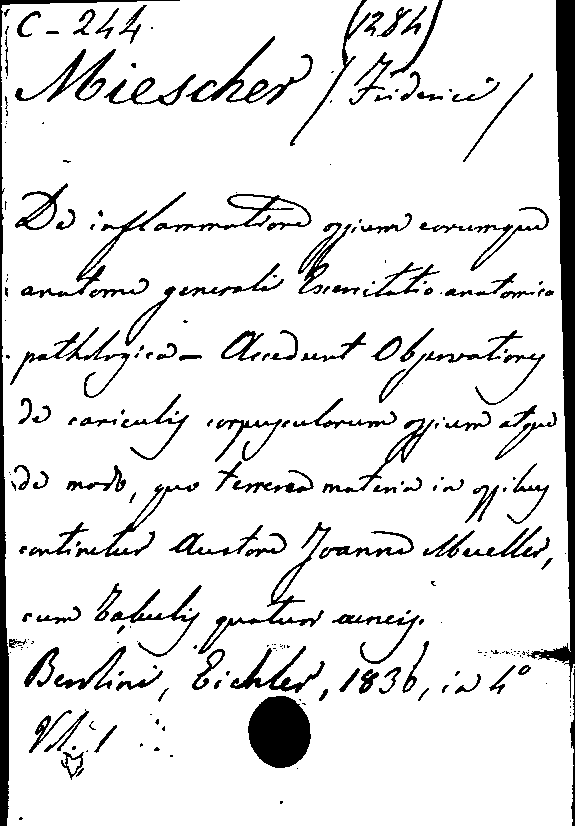 C - 244. (1284)
Miescher / Friderici /
De inflammatione ossium eorumque
anatome generali Exercitatio anatomico
pathologica - Accedunt Observationes
de caniculis corpusculorum ossium atque
de modo, quo terrerea materia in ossibus
continetur Auctore Joanne Mueller,
cum Tabulis quatuor aeneis.
Berolini, Eichler, 1836, in 4º
Vol. 1